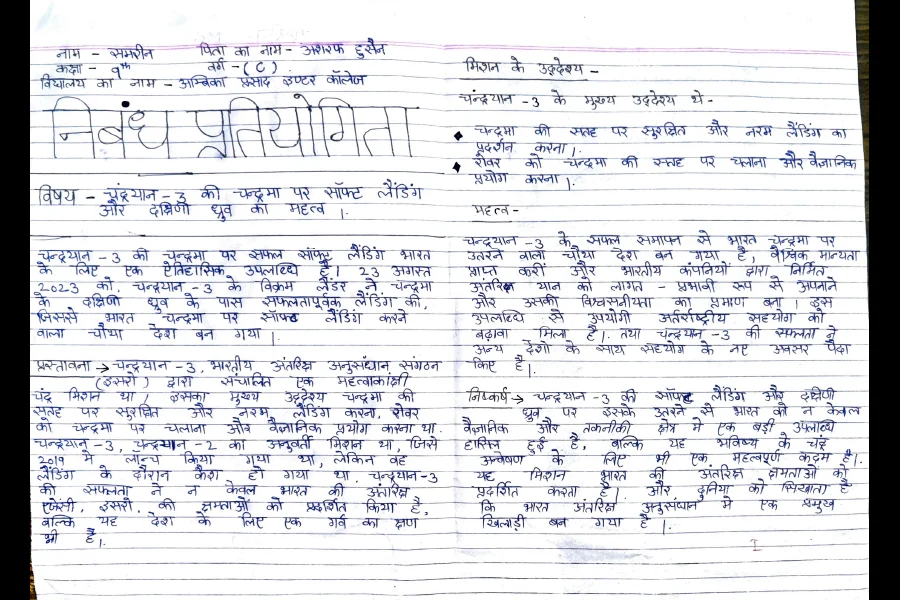 नाम - समरीन पिता का नाम - अशरफ हुसैन
कक्षा - 9th वर्ग - (C)
विद्यालय का नाम - अम्बिका प्रसाद इण्टर कॉलेज
निबंध प्रतियोगिता
विषय - चंद्रयान -3 की चन्द्रमा पर सॉफ्ट लैंडिंग
और दक्षिणी ध्रुव का महत्व ।.
चन्द्रयान -3 की चन्द्रमा पर सफल सॉफ्ट लैंडिंग भारत
के लिए एक ऐतिहासिक उपलब्धि है। 23 अगस्त
2023 को, चन्द्रयान -3 के विक्रम लैंडर ने चन्द्रमा
के दक्षिणी ध्रुव के पास सफलतापूर्वक लैंडिंग की,
जिससे भारत चन्द्रमा पर सॉफ्ट लैंडिंग करने
वाला चौथा देश बन गया ।
प्रस्तावना → चन्द्रयान -3, भारतीय अंतरिक्ष अनुसंधान संगठन
(इसरो) द्वारा संचालित एक महत्वाकांक्षी
चंद्र मिशन था। इसका मुख्य उद्देश्य चन्द्रमा की
सतह पर सुरक्षित और नरम लैंडिंग करना, रोवर
को चन्द्रमा पर चलाना और वैज्ञानिक प्रयोग करना था.
चन्द्रयान -3, चन्द्रयान -2 का अनुवर्ती मिशन था, जिसे
2019 में लॉन्च किया गया था, लेकिन वह
लैंडिंग के दौरान क्रैश हो गया था. चन्द्रयान-3
की सफलता ने न केवल भारत की अंतरिक्ष
एजेंसी, इसरो, की क्षमताओं को प्रदर्शित किया है,
बल्कि यह देश के लिए एक गर्व का क्षण
भी है।.
मिशन के उद्देश्य -
चन्द्रयान -3 के मुख्य उद्देश्य थे -
◆ चन्द्रमा की सतह पर सुरक्षित और नरम लैंडिंग का
प्रदर्शन करना।.
◆ रोवर को चन्द्रमा की सतह पर चलाना और वैज्ञानिक
प्रयोग करना ।.
महत्व -
चन्द्रयान -3 के सफल समापन से भारत चन्द्रमा पर
उतरने वाला चौथा देश बन गया है, वैश्विक मान्यता
प्राप्त करीं और भारतीय कंपनियों द्वारा निर्मित
अंतरिक्ष यान को लागत - प्रभावी रूप से अपनाने
और उसकी विश्वसनीयता का प्रमाण बना। इस
उपलब्धि से उपयोगी अंतर्राष्ट्रीय सहयोग को
बढ़ावा मिला है।. तथा चन्द्रयान -3 की सफलता ने
अन्य देशों के साथ सहयोग के नए अवसर पैदा
किए हैं।.
निष्कर्ष → चन्द्रयान -3 की सॉफ्ट लैंडिंग और दक्षिणी
ध्रुव पर इसके उतरने से भारत को न केवल
वैज्ञानिक और तकनीकी क्षेत्र में एक बड़ी उपलब्धि
हासिल हुई है, बल्कि यह भविष्य के चंद्र
अन्वेषण के लिए भी एक महत्वपूर्ण कदम है।.
यह मिशन भारत की अंतरिक्ष क्षमताओं को
प्रदर्शित करता है। और दुनिया को सिखाता है
कि भारत अंतरिक्ष अनुसंधान में एक प्रमुख
खिलाड़ी बन गया है ।.